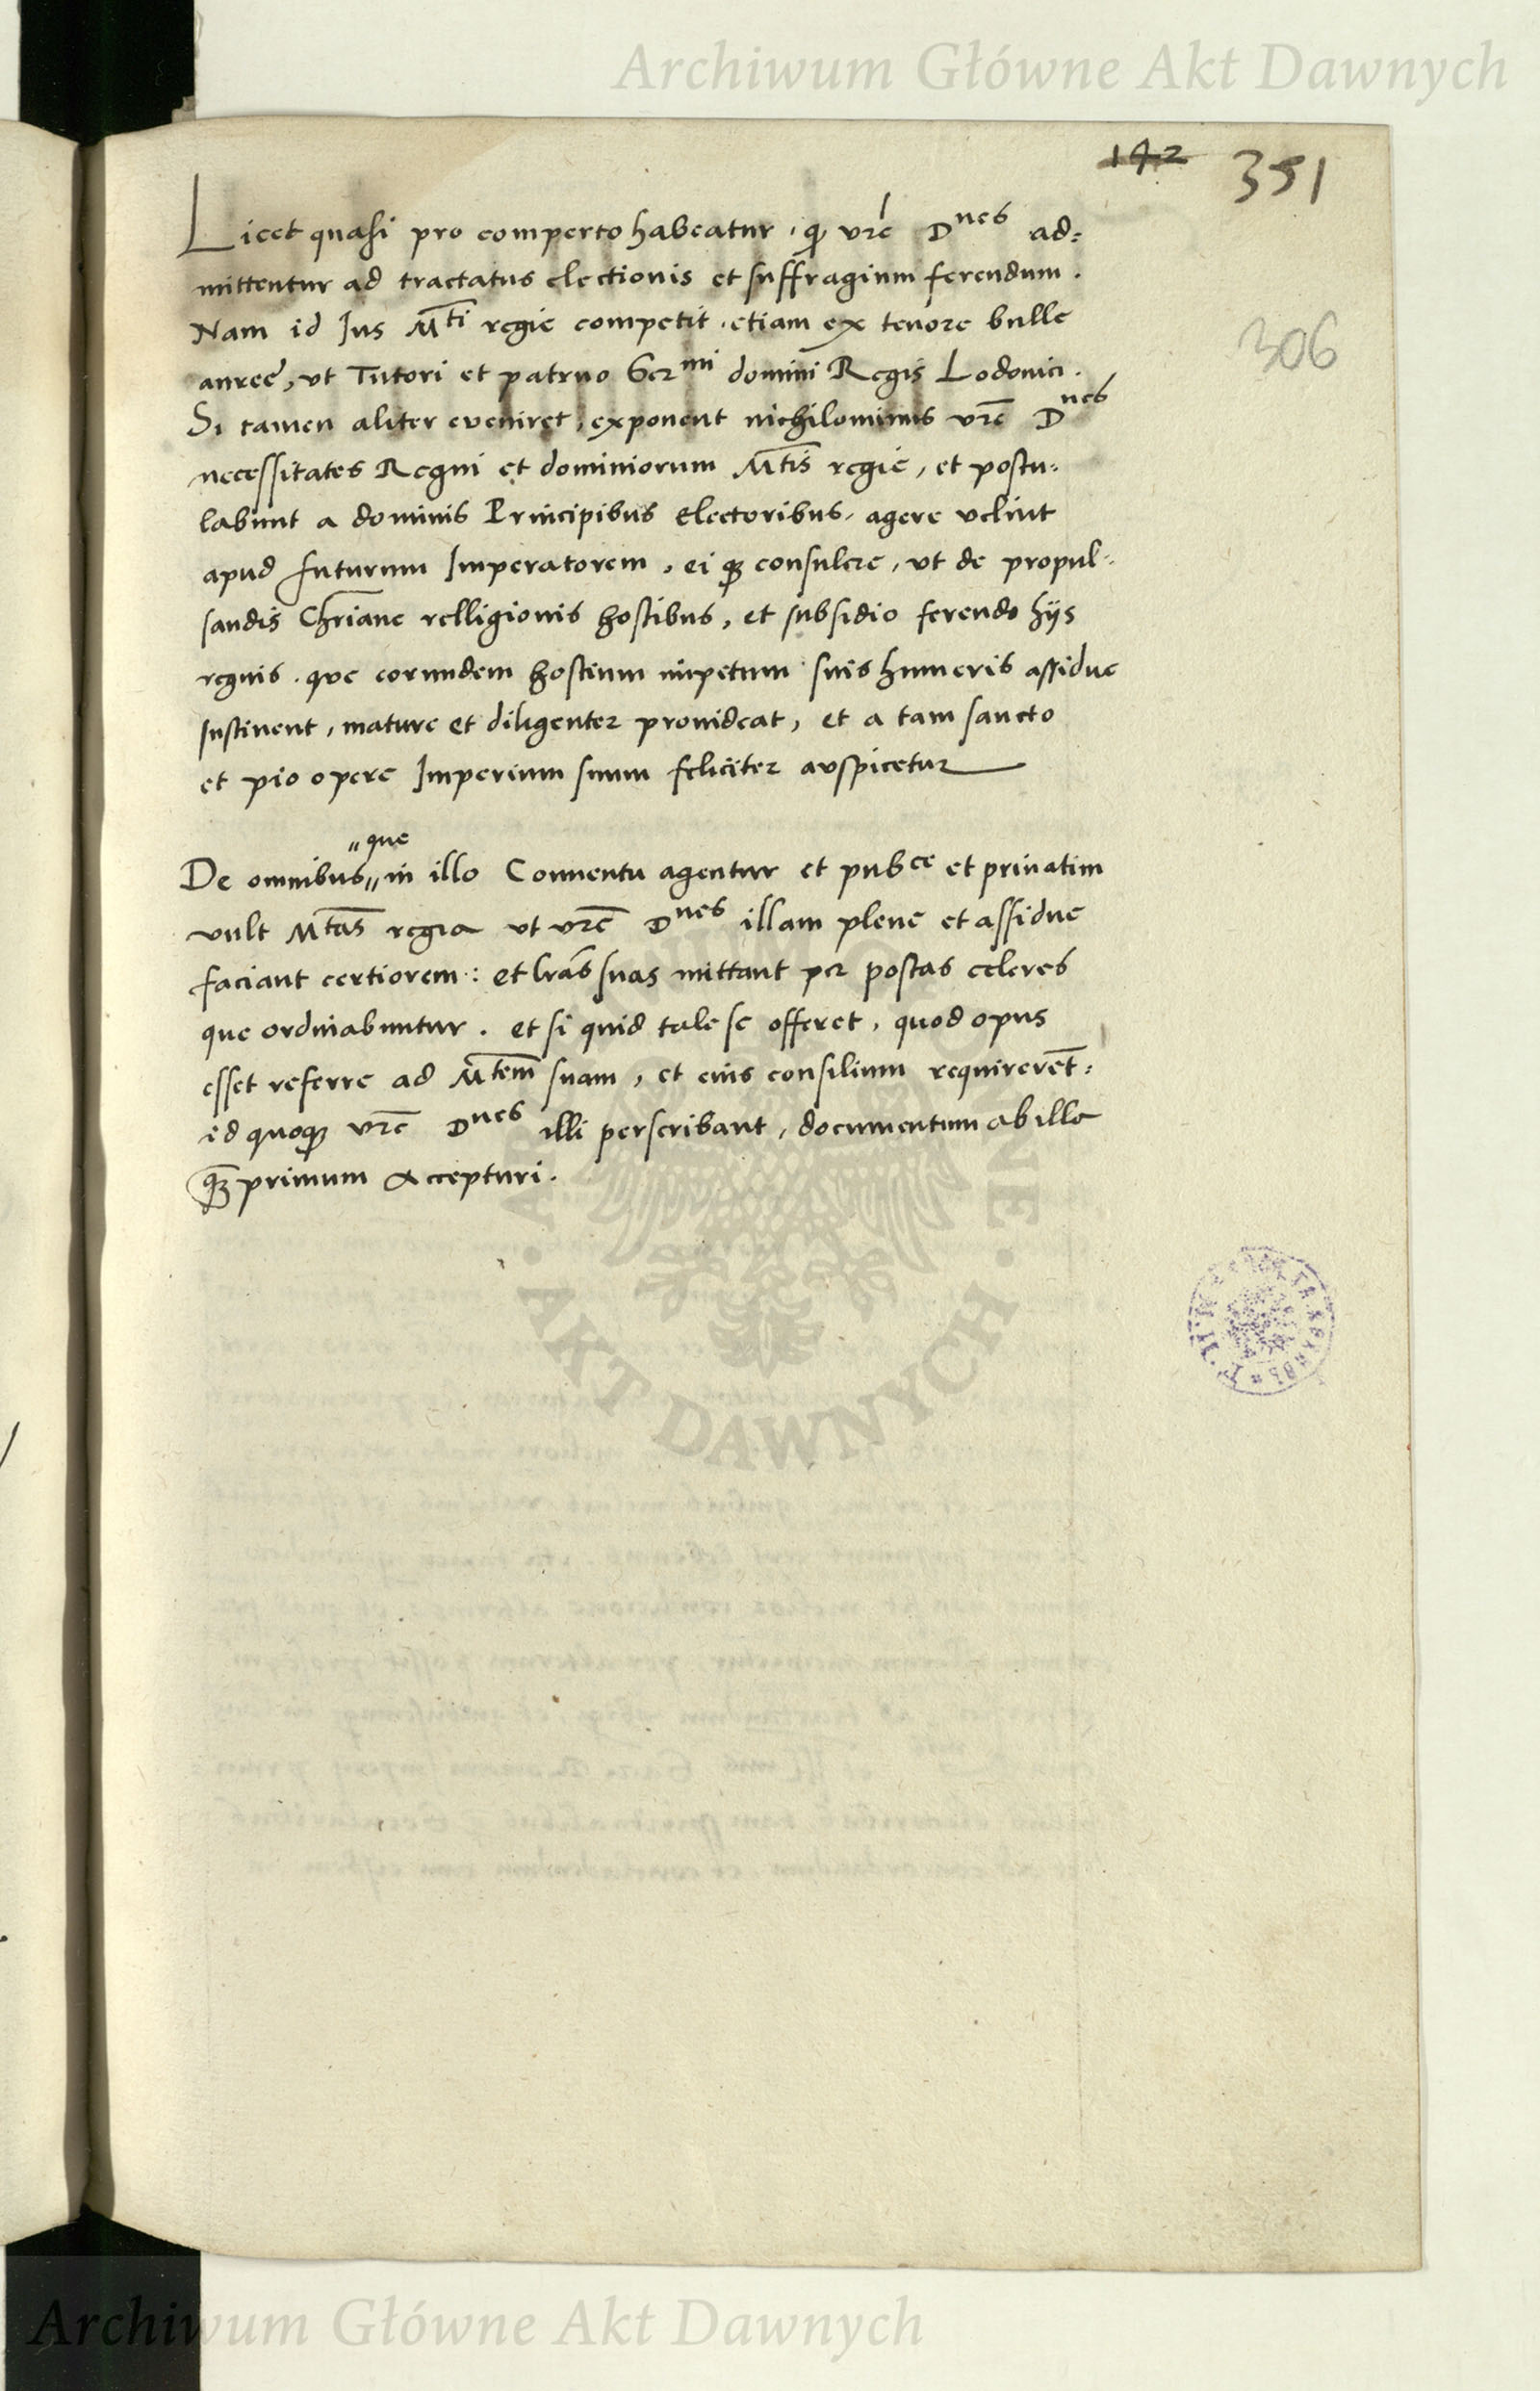 Archiwum Główne Akt Dawnych
142 351
306
Licet quasi pro comperto habeatur, ꝙ vre͞ Dnes ad=
mittentur ad tractatus electionis et suffragium ferendum.
Nam id Jus Mti regie competit, etiam ex tenore bulle
auree, vt Tutori et patruo Sermi domini Regis Lodouici.
Si tamen aliter eveniret, exponent nichilominus vre͞ Dnes
necessitates Regni et dominiorum Mtis regie, et postu=
labunt a dominis Principibus Electoribus, agere velint
apud futurum Imperatorem, ei qȝ consulere, vt de propul=
sandis Chr͞iane relligionis hostibus, et subsidio ferendo hijs
regnis, que eorundem hostium impetum suis humeris assidue
sustinent, mature et diligenter prouideat, et a tam sancto
et pio opere Imperium suum feliciter auspicetur
"que
De omnibus" in illo Conuentu agentur et pubce et priuatim
vult Mtas regia vt vre͞ Dnes illam plene et assidue
faciant certiorem: et lr͞as suas mittant per postas celeres
que ordinabuntur. et si quid tale se offeret, quod opus
esset referre ad Mtem suam, et eius consilium requirere͞t:
id quoqȝ vre͞ Dnes illi perscribant, documentum ab illa
qȝ͞primum accepturi.
AKT DAWNYCH
Archiwum Główne Akt Dawnych